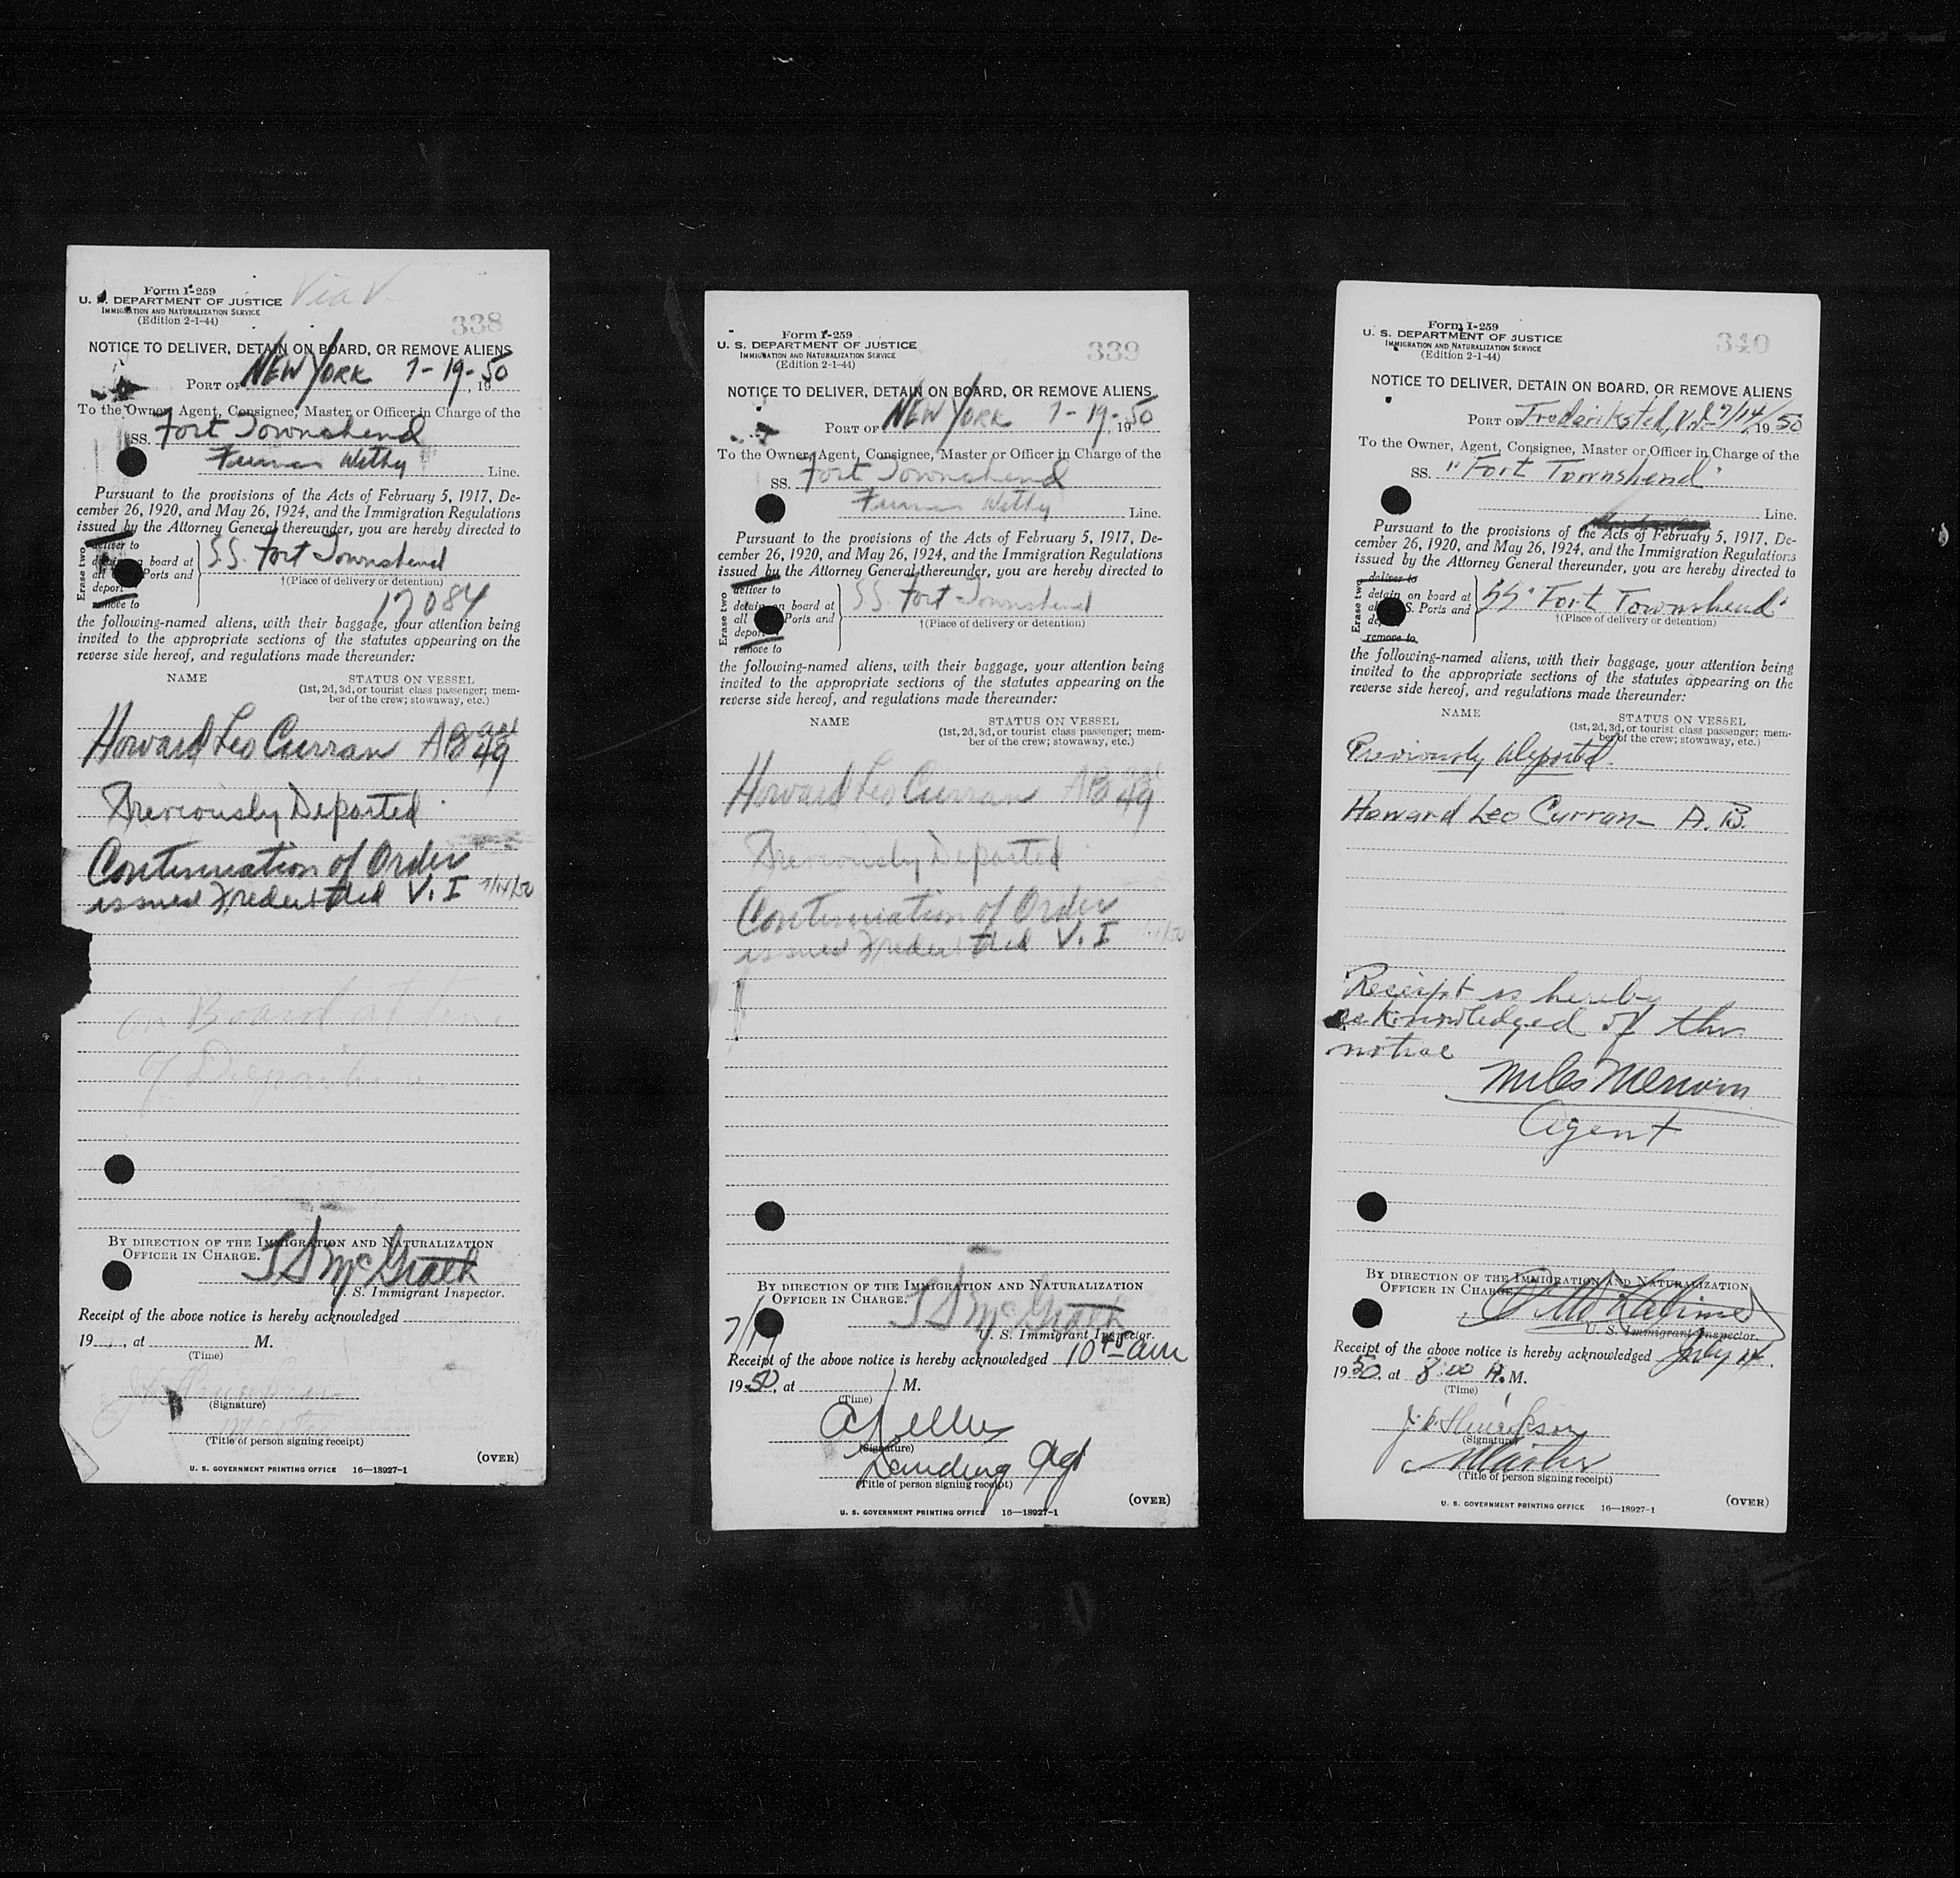 Form I-259
U. S. DEPARTMENT OF JUSTICE
IMMIGRATION AND NATURALIZATION SERVICE
(Edition 2-1-44)
338
NOTICE TO DELIVER, DETAIN ON BOARD, OR REMOVE ALIENS
PORT OF NEW YORK 7-19-, 1950
To the Owner, Agent, Consignee, Master or Officer in Charge of the
SS. Fort Townshend
Furness Withy Line.
Pursuant to the provisions of the Acts of February 5, 1917, De-
cember 26, 1920, and May 26, 1924, and the Immigration Regulations
issued by the Attorney General thereunder, you are hereby directed to
Erase two
deliver to
board at
all Ports and
deport
remove to
SS. Fort Townshend
†(Place of delivery or detention)
17084
the following-named aliens, with their baggage, your attention being
invited to the appropriate sections of the statutes appearing on the
reverse side hereof, and regulations made thereunder:
NAME STATUS ON VESSEL
(1st, 2d, 3d, or tourist class passenger; mem-
ber of the crew; stowaway, etc.)
Howard Leo Curran AB 49
Previously Deported
Continuation of Order
issued Fredericksted V. I 7/14/50
on Board at time
of
BY DIRECTION OF THE IMMIGRATION AND NATURALIZATION
OFFICER IN CHARGE.
McGrath
U. S. Immigrant Inspector.
Receipt of the above notice is hereby acknowledged
19 , at M.
(Time)
(Signature)
Master
(Title of person signing receipt)
(OVER)
U. S. GOVERNMENT PRINTING OFFICE 16—18927-1
Form I-259
U. S. DEPARTMENT OF JUSTICE
IMMIGRATION AND NATURALIZATION SERVICE
(Edition 2-1-44)
339
NOTICE TO DELIVER, DETAIN ON BOARD, OR REMOVE ALIENS
PORT OF NEW YORK 7-19-, 1950
To the Owner, Agent, Consignee, Master or Officer in Charge of the
SS. Fort Townshend
Furness Withy Line.
Pursuant to the provisions of the Acts of February 5, 1917, De-
cember 26, 1920, and May 26, 1924, and the Immigration Regulations
issued by the Attorney General thereunder, you are hereby directed to
Erase two
deliver to
detain on board at
all Ports and
deport
remove to
SS. Fort Townshend
†(Place of delivery or detention)
the following-named aliens, with their baggage, your attention being
invited to the appropriate sections of the statutes appearing on the
reverse side hereof, and regulations made thereunder:
NAME STATUS ON VESSEL
(1st, 2d, 3d, or tourist class passenger; mem-
ber of the crew; stowaway, etc.)
Howard Leo Curran AB 49
Previously Deported
Continuation of Order
issued Fredericksted V. I
BY DIRECTION OF THE IMMIGRATION AND NATURALIZATION
OFFICER IN CHARGE.
McGrath
U. S. Immigrant Inspector.
7/19
Receipt of the above notice is hereby acknowledged 10 45 am
1950, at M.
(Time)
(Signature)
Landing Agt
(Title of person signing receipt)
(OVER)
U. S. GOVERNMENT PRINTING OFFICE 16—18927-1
Form I-259
U. S. DEPARTMENT OF JUSTICE
IMMIGRATION AND NATURALIZATION SERVICE
(Edition 2-1-44)
340
NOTICE TO DELIVER, DETAIN ON BOARD, OR REMOVE ALIENS
PORT OF Frederiksted, V.I. 7/14/, 1950
To the Owner, Agent, Consignee, Master or Officer in Charge of the
SS. "Fort Townshend"
Line.
Pursuant to the provisions of the Acts of February 5, 1917, De-
cember 26, 1920, and May 26, 1924, and the Immigration Regulations
issued by the Attorney General thereunder, you are hereby directed to
Erase two
deliver to
detain on board at
all S. Ports and
remove to
SS "Fort Townshend"
†(Place of delivery or detention)
the following-named aliens, with their baggage, your attention being
invited to the appropriate sections of the statutes appearing on the
reverse side hereof, and regulations made thereunder:
NAME STATUS ON VESSEL
(1st, 2d, 3d, or tourist class passenger; mem-
ber of the crew; stowaway, etc.)
Previously deported.
Howard Leo Curran - A. B.
Receipt is hereby
acknowledged of this
notice
Miles Merwin
Agent
BY DIRECTION OF THE IMMIGRATION AND NATURALIZATION
OFFICER IN CHARGE.
U. S. Immigrant Inspector.
Receipt of the above notice is hereby acknowledged July 14,
1950, at 8:00 A. M.
(Time)
(Signature)
Master
(Title of person signing receipt)
(OVER)
U. S. GOVERNMENT PRINTING OFFICE 16—18927-1